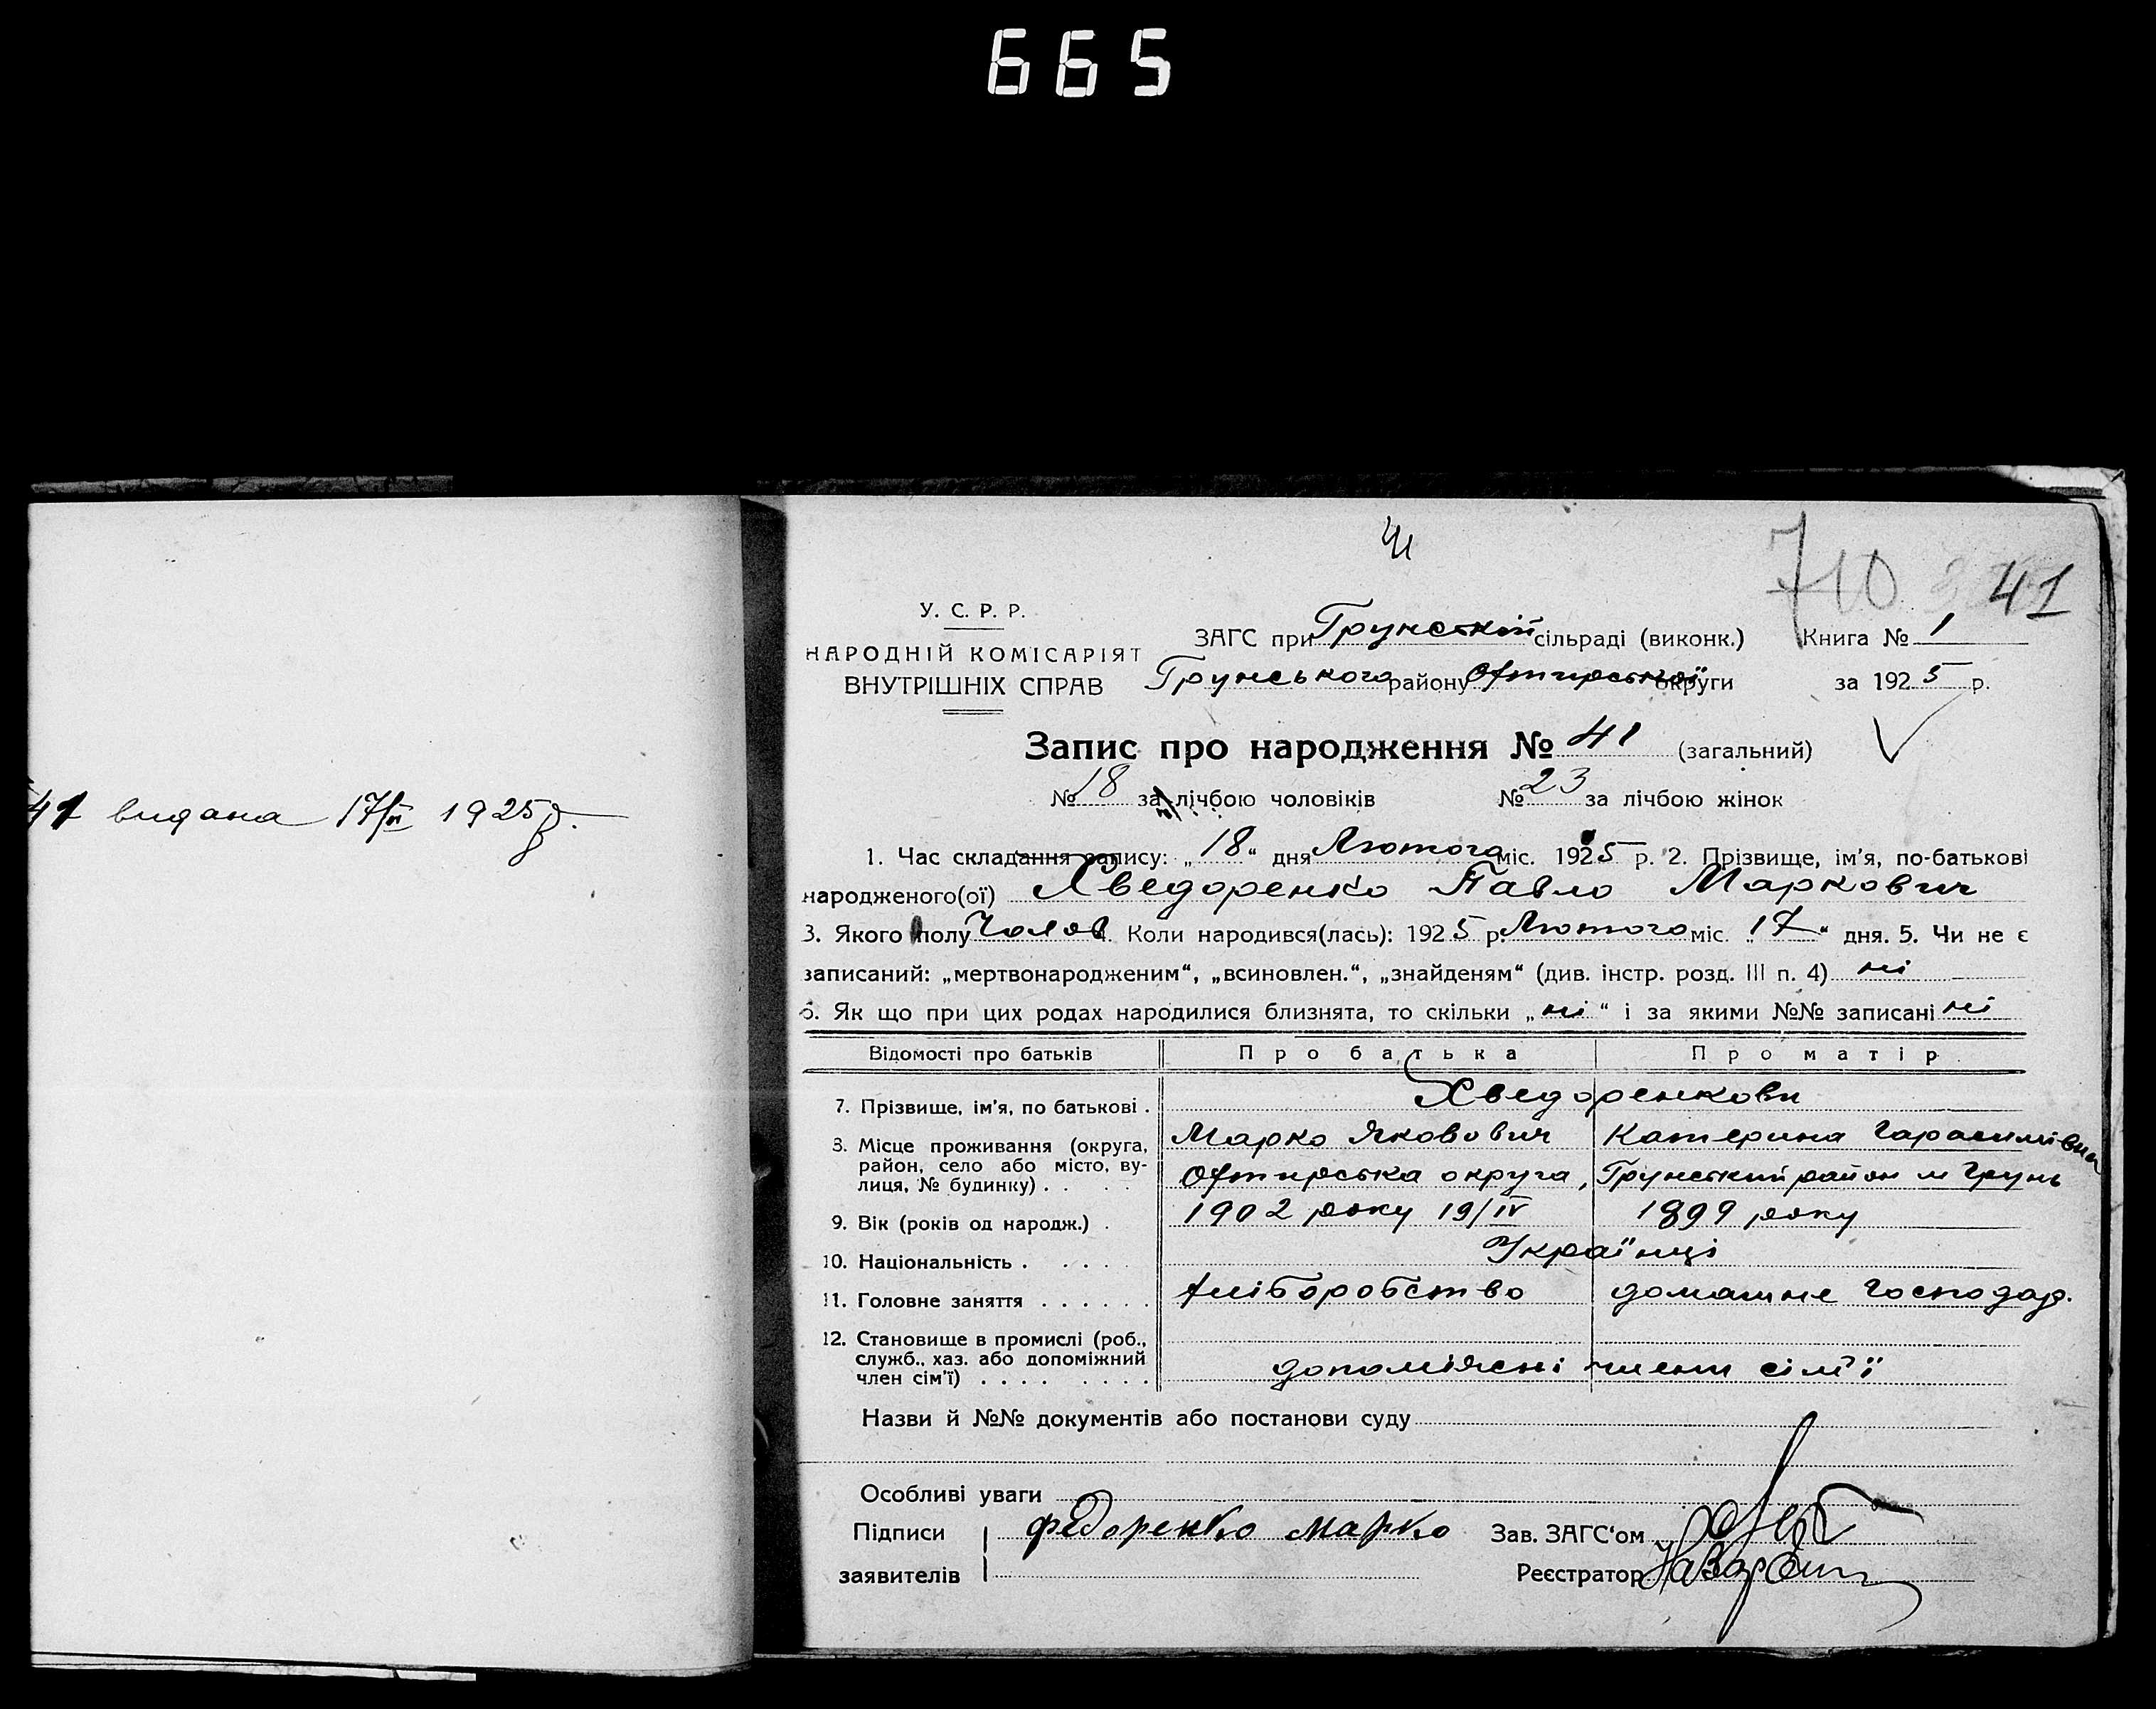 665
41 видана 17/VI 1925 р.
41
710 41
У. С. Р. Р.
НАРОДНІЙ КОМІСАРІЯТ
ВНУТРІШНІХ СПРАВ
ЗАГС при Грунській сільраді (виконк.) Книга № 1
Грунського району Охтирської округи за 1925 р.
Запис про народження № 41 (загальний)
№ 18 за лічбою чоловіків № 23 за лічбою жінок
1. Час складання запису: „18“ дня Лютого міс. 1925 р. 2. Прізвище, ім'я, по-батькові
народженого(ої) Хведоренко Павло Маркович
3. Якого полу Чолов 4. Коли народився(лась): 1925 р. Лютого міс. „17“ дня. 5. Чи не є
записаний: „мертвонародженим“, „всиновлен.“, „знайденям“ (див. інстр. розд. III п. 4) ні
6. Як що при цих родах народилися близнята, то скільки „ні“ і за якими №№ записані ні
Відомості про батьків Про батька Про матір
7. Прізвище, ім'я, по батькові . Хведоренкови
Марко Якович Катерина Гарасимівна
8. Місце проживання (округа,
район, село або місто, ву-
лиця, № будинку) . . . Охтирська округа, Грунський район м Грунь
9. Вік (років од народж.) . 1902 року 19/IV 1899 року
10. Національність . . . . . Українці
11. Головне заняття . . . . . . хліборобство домашнє господар.
12. Становище в промислі (роб.,
служб., хаз. або допоміжний
член сім'ї) . . . . . . . . допоміжні члени сім'ї
Назви й №№ документів або постанови суду
Особливі уваги
Підписи Федоренко Марко Зав. ЗАГС'ом
заявителів Реєстратор